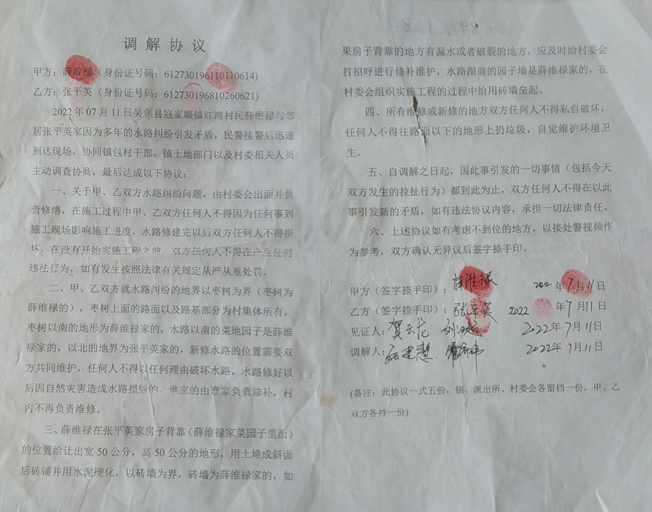 调解协议
甲方：薛维禄（身份证号码：612730196110110614）
乙方：张平英（身份证号码：612730196810260621）
2022年07月11日吴堡县寇家塬镇红湾村民薛维禄与邻
居张平英家因为多年的水路纠纷引发矛盾，民警接警后迅速
到达现场，协同镇包村干部、镇土地部门以及村委相关人员
主动调查协商，最后达成以下协议：
一、关于甲、乙双方水路纠纷问题，由村委会出面并负
责修缮，在施工过程中甲、乙双方任何人不得因为任何事到
施工现场影响施工进度，水路修建完以后双方任何人不得损
坏，在没有开始实施工程之前，双方任何人不得在产生任何
违法行为，如有发生按照法律有关规定从严从重处罚。
二、甲、乙双方就水路纠纷的地界以枣树为界（枣树为
薛维禄的），枣树上面的路面以及路基部分为村集体所有，
枣树以南的地形为薛维禄家的，水路以南的菜地园子是薛维
禄家的，以北的地界为张平英家的，新修水路的位置需要双
方共同维护，任何人不得以任何理由破坏水路。水路修好以
后因自然灾害造成水路损毁的，谁家的由谁家负责修补，村
内不再负责维修。
三、薛维禄在张平英家房子背靠（薛维禄家菜园子里面）
的位置给让出宽50公分，高50公分的地形，用土堆成斜面
后砖铺并用水泥硬化，以砖墙为界，砖墙为薛维禄家的，如
果房子背靠的地方有漏水或者破裂的地方，应及时给村委会
打招呼进行修补维护，水路跟前的园子墙是薛维禄家的，在
村委会组织实施工程的过程中给用砖垒起。
四、所有维修或新修的地方双方任何人不得私自破坏，
任何人不得往路面以下的地形上扔垃圾，自觉维护环境卫
生。
五、自调解之日起，因此事引发的一切事情（包括今天
双方发生的拉扯行为）都到此为止，双方任何人不得在以此
事引发新的矛盾，如有违法协议内容，承担一切法律责任。
六、上述协议如有考虑不到位的地方，以接处警视频作
为参考，双方确认无异议后签字捺手印。
甲方（签字捺手印）：薛维禄 2022年7月11日
乙方（签字捺手印）：张平英 2022年7月11日
见证人： 2022年7月11日
调解人： 2022年7月11日
(备注：此协议一式五份，镇、派出所、村委会各留档一份，甲、乙
双方各持一份)